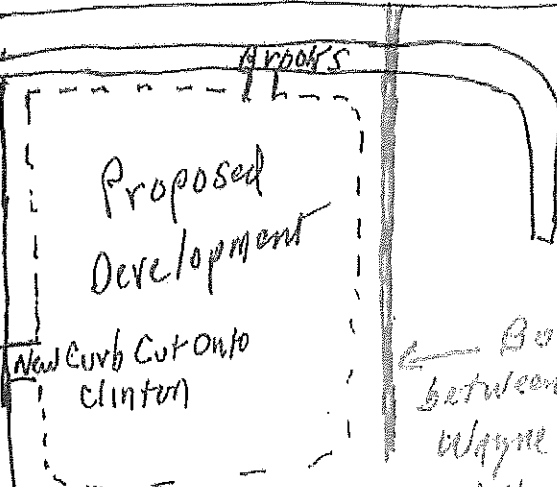 Brooks
Proposed
Development
New Curb Cut Onto
Clinton
Bo
between
Wayne